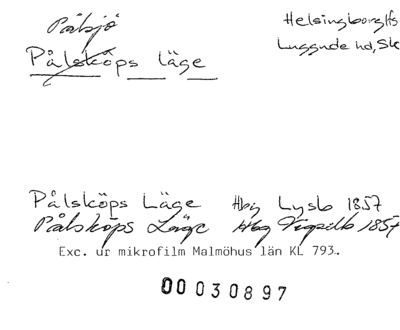 Pålsjö
Helsingborg lfs
Pålsköps läge
Luggude hd, Sk
Pålsköps Läge Hbg Lysb 1857
Pålsköps Läge Hbg 1857
Exc. ur mikrofilm Malmöhus län KL 793.
00030897